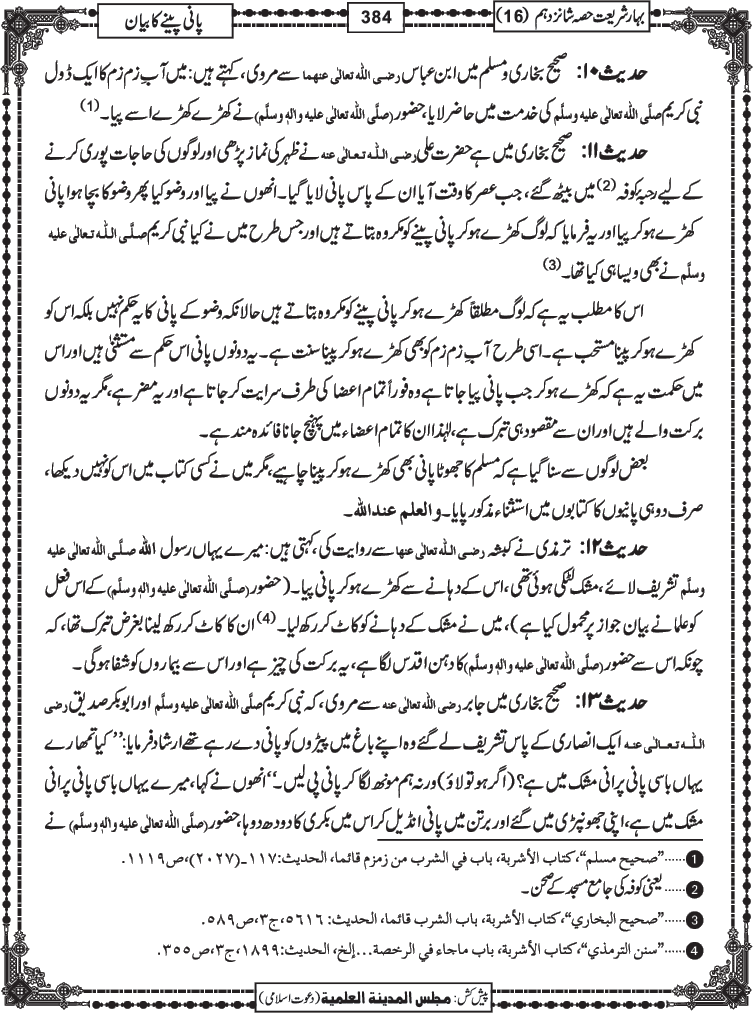 بہارِ شریعت حصہ شانزدہم (16)
384
پانی پینے کا بیان
حدیث ۱۰: صحیح بخاری و مسلم میں ابن عباس رضی اللہ تعالٰی عنہما سے مروی، کہتے ہیں: میں آبِ زم زم کا ایک ڈول
نبی کریم صلَّی اللہ تعالٰی علیہ وسلَّم کی خدمت میں حاضر لایا، حضور (صلَّی اللہ تعالٰی علیہ واٰلہٖ وسلَّم) نے کھڑے کھڑے اسے پیا۔(1)
حدیث ۱۱: صحیح بخاری میں ہے حضرت علی رضی اللہ تعالٰی عنہ نے ظہر کی نماز پڑھی اور لوگوں کی حاجات پوری کرنے
کے لیے رحبۂ کوفہ (2) میں بیٹھ گئے، جب عصر کا وقت آیا ان کے پاس پانی لایا گیا۔ انھوں نے پیا اور وضو کیا پھر وضو کا بچا ہوا پانی
کھڑے ہو کر پیا اور یہ فرمایا کہ لوگ کھڑے ہو کر پانی پینے کو مکروہ بتاتے ہیں اور جس طرح میں نے کیا نبی کریم صلَّی اللہ تعالٰی علیہ
وسلَّم نے بھی ویسا ہی کیا تھا۔(3)
اس کا مطلب یہ ہے کہ لوگ مطلقاً کھڑے ہو کر پانی پینے کو مکروہ بتاتے ہیں حالانکہ وضو کے پانی کا یہ حکم نہیں بلکہ اس کو
کھڑے ہو کر پینا مستحب ہے۔ اسی طرح آبِ زم زم کو بھی کھڑے ہو کر پینا سنت ہے۔ یہ دونوں پانی اس حکم سے مستثنیٰ ہیں اور اس
میں حکمت یہ ہے کہ کھڑے ہو کر جب پانی پیا جاتا ہے وہ فوراً تمام اعضا کی طرف سرایت کر جاتا ہے اور یہ مضر ہے، مگر یہ دونوں
برکت والے ہیں اور ان سے مقصود ہی تبرک ہے، لہٰذا ان کا تمام اعضاء میں پہنچ جانا فائدہ مند ہے۔
بعض لوگوں سے سنا گیا ہے کہ مسلم کا جھوٹا پانی بھی کھڑے ہو کر پینا چاہیے، مگر میں نے کسی کتاب میں اس کو نہیں دیکھا،
صرف دو ہی پانیوں کا کتابوں میں استثناء مذکور پایا۔ و العلم عنداللہ۔
حدیث ۱۲: ترمذی نے کبشہ رضی اللہ تعالٰی عنہا سے روایت کی، کہتی ہیں: میرے یہاں رسول اللہ صلَّی اللہ تعالٰی علیہ
وسلَّم تشریف لائے، مشک لٹکی ہوئی تھی، اس کے دہانے سے کھڑے ہو کر پانی پیا۔ (حضور (صلَّی اللہ تعالٰی علیہ واٰلہٖ وسلَّم) کے اس فعل
کو علما نے بیان جواز پر محمول کیا ہے)، میں نے مشک کے دہانے کو کاٹ کر رکھ لیا۔(4) ان کا کاٹ کر رکھ لینا بغرض تبرک تھا، کہ
چونکہ اس سے حضور (صلَّی اللہ تعالٰی علیہ واٰلہٖ وسلَّم) کا دہن اقدس لگا ہے، یہ برکت کی چیز ہے اور اس سے بیماروں کو شفا ہوگی۔
حدیث ۱۳: صحیح بخاری میں جابر رضی اللہ تعالٰی عنہ سے مروی، کہ نبی کریم صلَّی اللہ تعالٰی علیہ وسلَّم اور ابوبکر صدیق رضی
اللہ تعالٰی عنہ ایک انصاری کے پاس تشریف لے گئے وہ اپنے باغ میں پیڑوں کو پانی دے رہے تھے ارشاد فرمایا: ’’کیا تمھارے
یہاں باسی پانی پرانی مشک میں ہے؟ (اگر ہو تو لاؤ) ورنہ ہم مونھ لگا کر پانی پی لیں۔‘‘ انھوں نے کہا، میرے یہاں باسی پانی پرانی
مشک میں ہے، اپنی جھونپڑی میں گئے اور برتن میں پانی انڈیل کر اس میں بکری کا دودھ دوہا، حضور (صلَّی اللہ تعالٰی علیہ واٰلہٖ وسلَّم) نے
1......”صحیح مسلم“، کتاب الأشربۃ، باب في الشرب من زمزم قائما، الحدیث: ۱۱۷۔(۲۰۲۷)، ص۱۱۱۹.
2......یعنی کوفہ کی جامع مسجد کے صحن۔
3......”صحیح البخاري“، کتاب الأشربۃ، باب الشرب قائما، الحدیث: ۵۶۱۶، ج۳، ص۵۸۹.
4......”سنن الترمذي“، کتاب الأشربۃ، باب ماجاء في الرخصۃ...إلخ، الحدیث: ۱۸۹۹، ج۳، ص۳۵۵.
پیش کش: مجلس المدینۃ العلمیۃ (دعوت اسلامی)